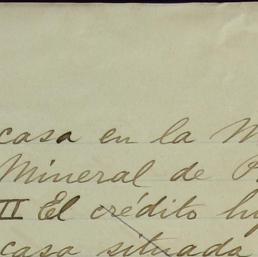 casa en la
Mineral de
III El crédito
casa situada